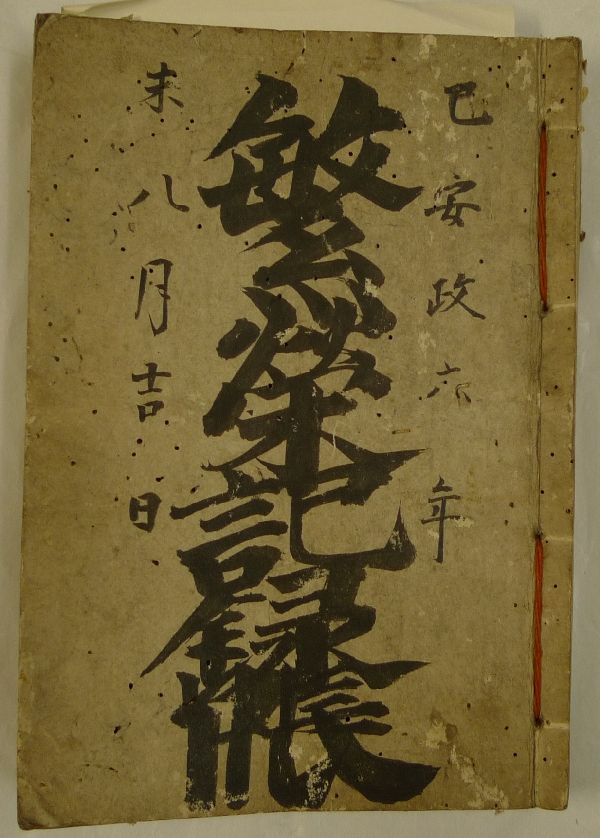 己安政六年
繁栄記録帳
未八月吉日